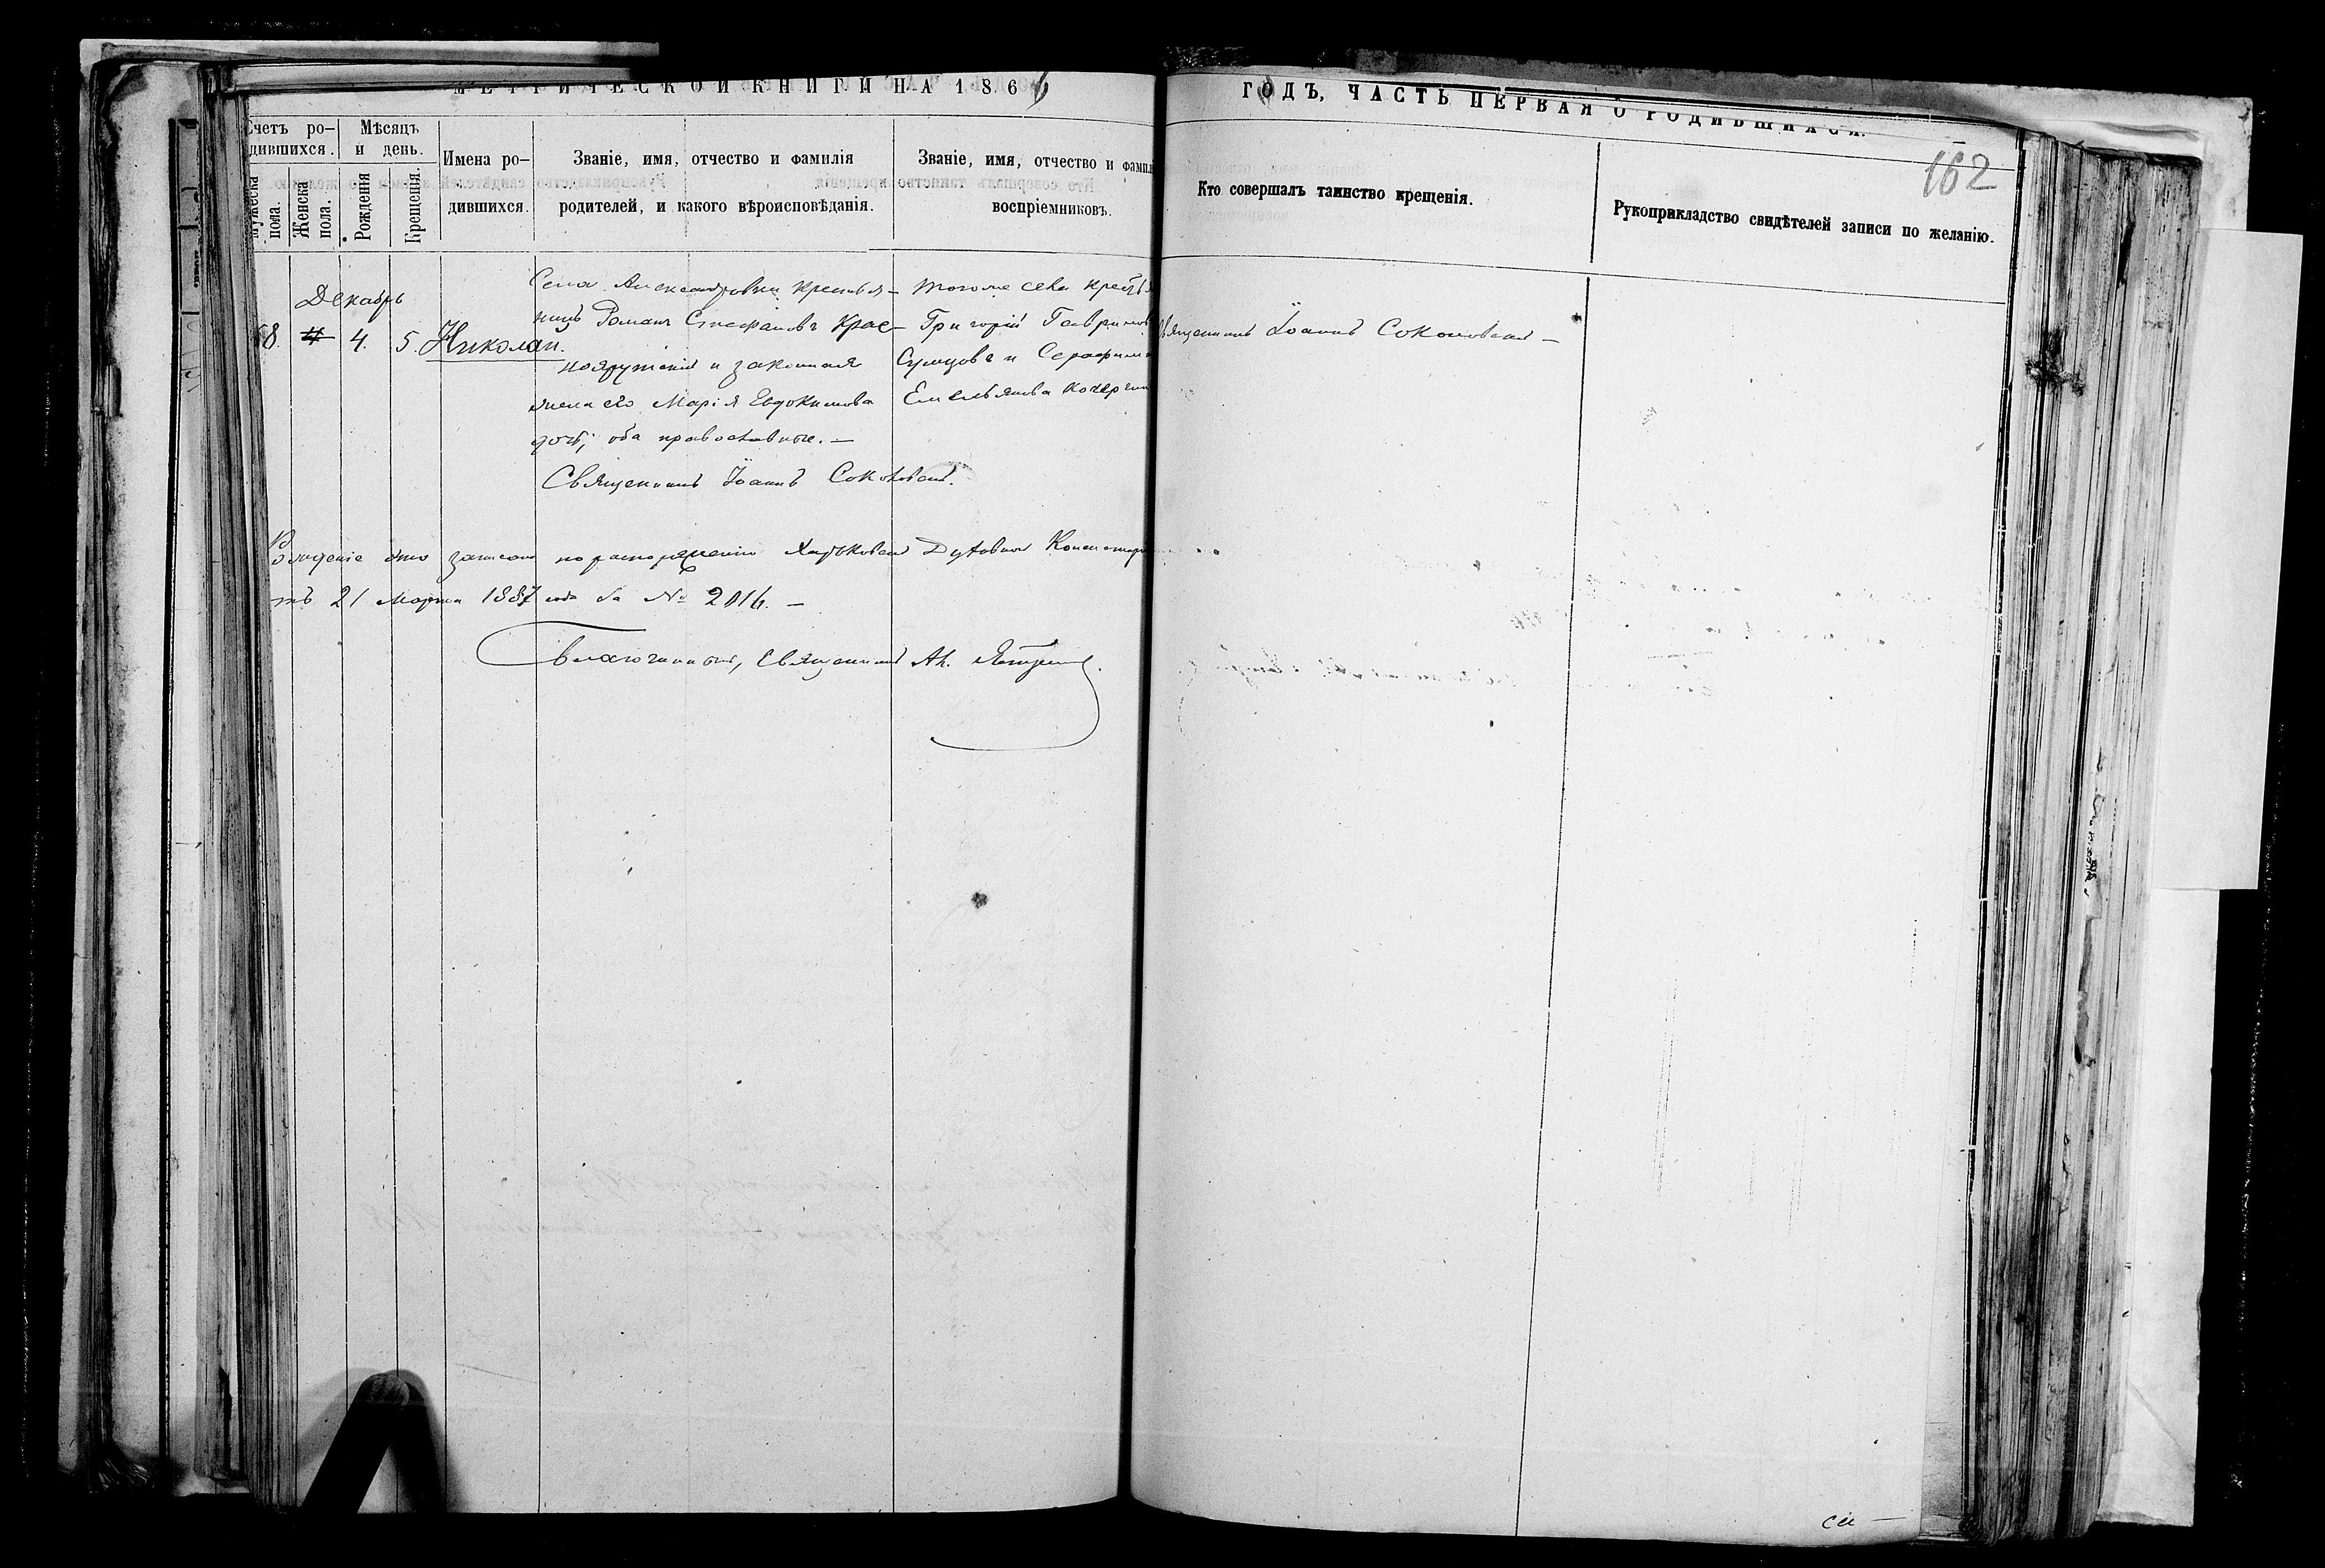 МЕТРИЧЕСКОЙ КНИГИ НА 186
ГОДЪ, ЧАСТЬ ПЕРВАЯ О РОДИВШИХСЯ.
162
Счетъ ро-
дившихся.
Мѣсяцъ
и день.
Мужеска
пола.
Женска
пола.
Рожденія
Крещенія.
Имена ро-
дившихся.
Званіе, имя, отчество и фамилія
родителей, и какого вѣроисповѣданія.
Званіе, имя, отчество и фамил
воспріемниковъ.
Кто совершалъ таинство крещенія.
Рукоприкладство свидѣтелей записи по желанію.
Декабрь
68.
4.
5.
Николай.
Села Александровки крестья-
нинъ Романъ Стефановъ Крас-
нояружскій и законная
жена его Марія Евдокимова
дочь; оба православные. —
Священникъ Іоаннъ Соколовскій.
того же села крестья
Григорій Гавриловъ
Сумцовъ и Серафима
Емельянова Кочергин
Священникъ Іоаннъ Соколовскій —
Рожденіе это записано по распоряженію Харьковской Духовной Консисторіи
отъ 21 Марта 1887 года за № 2016. —
Благочинный, Священникъ